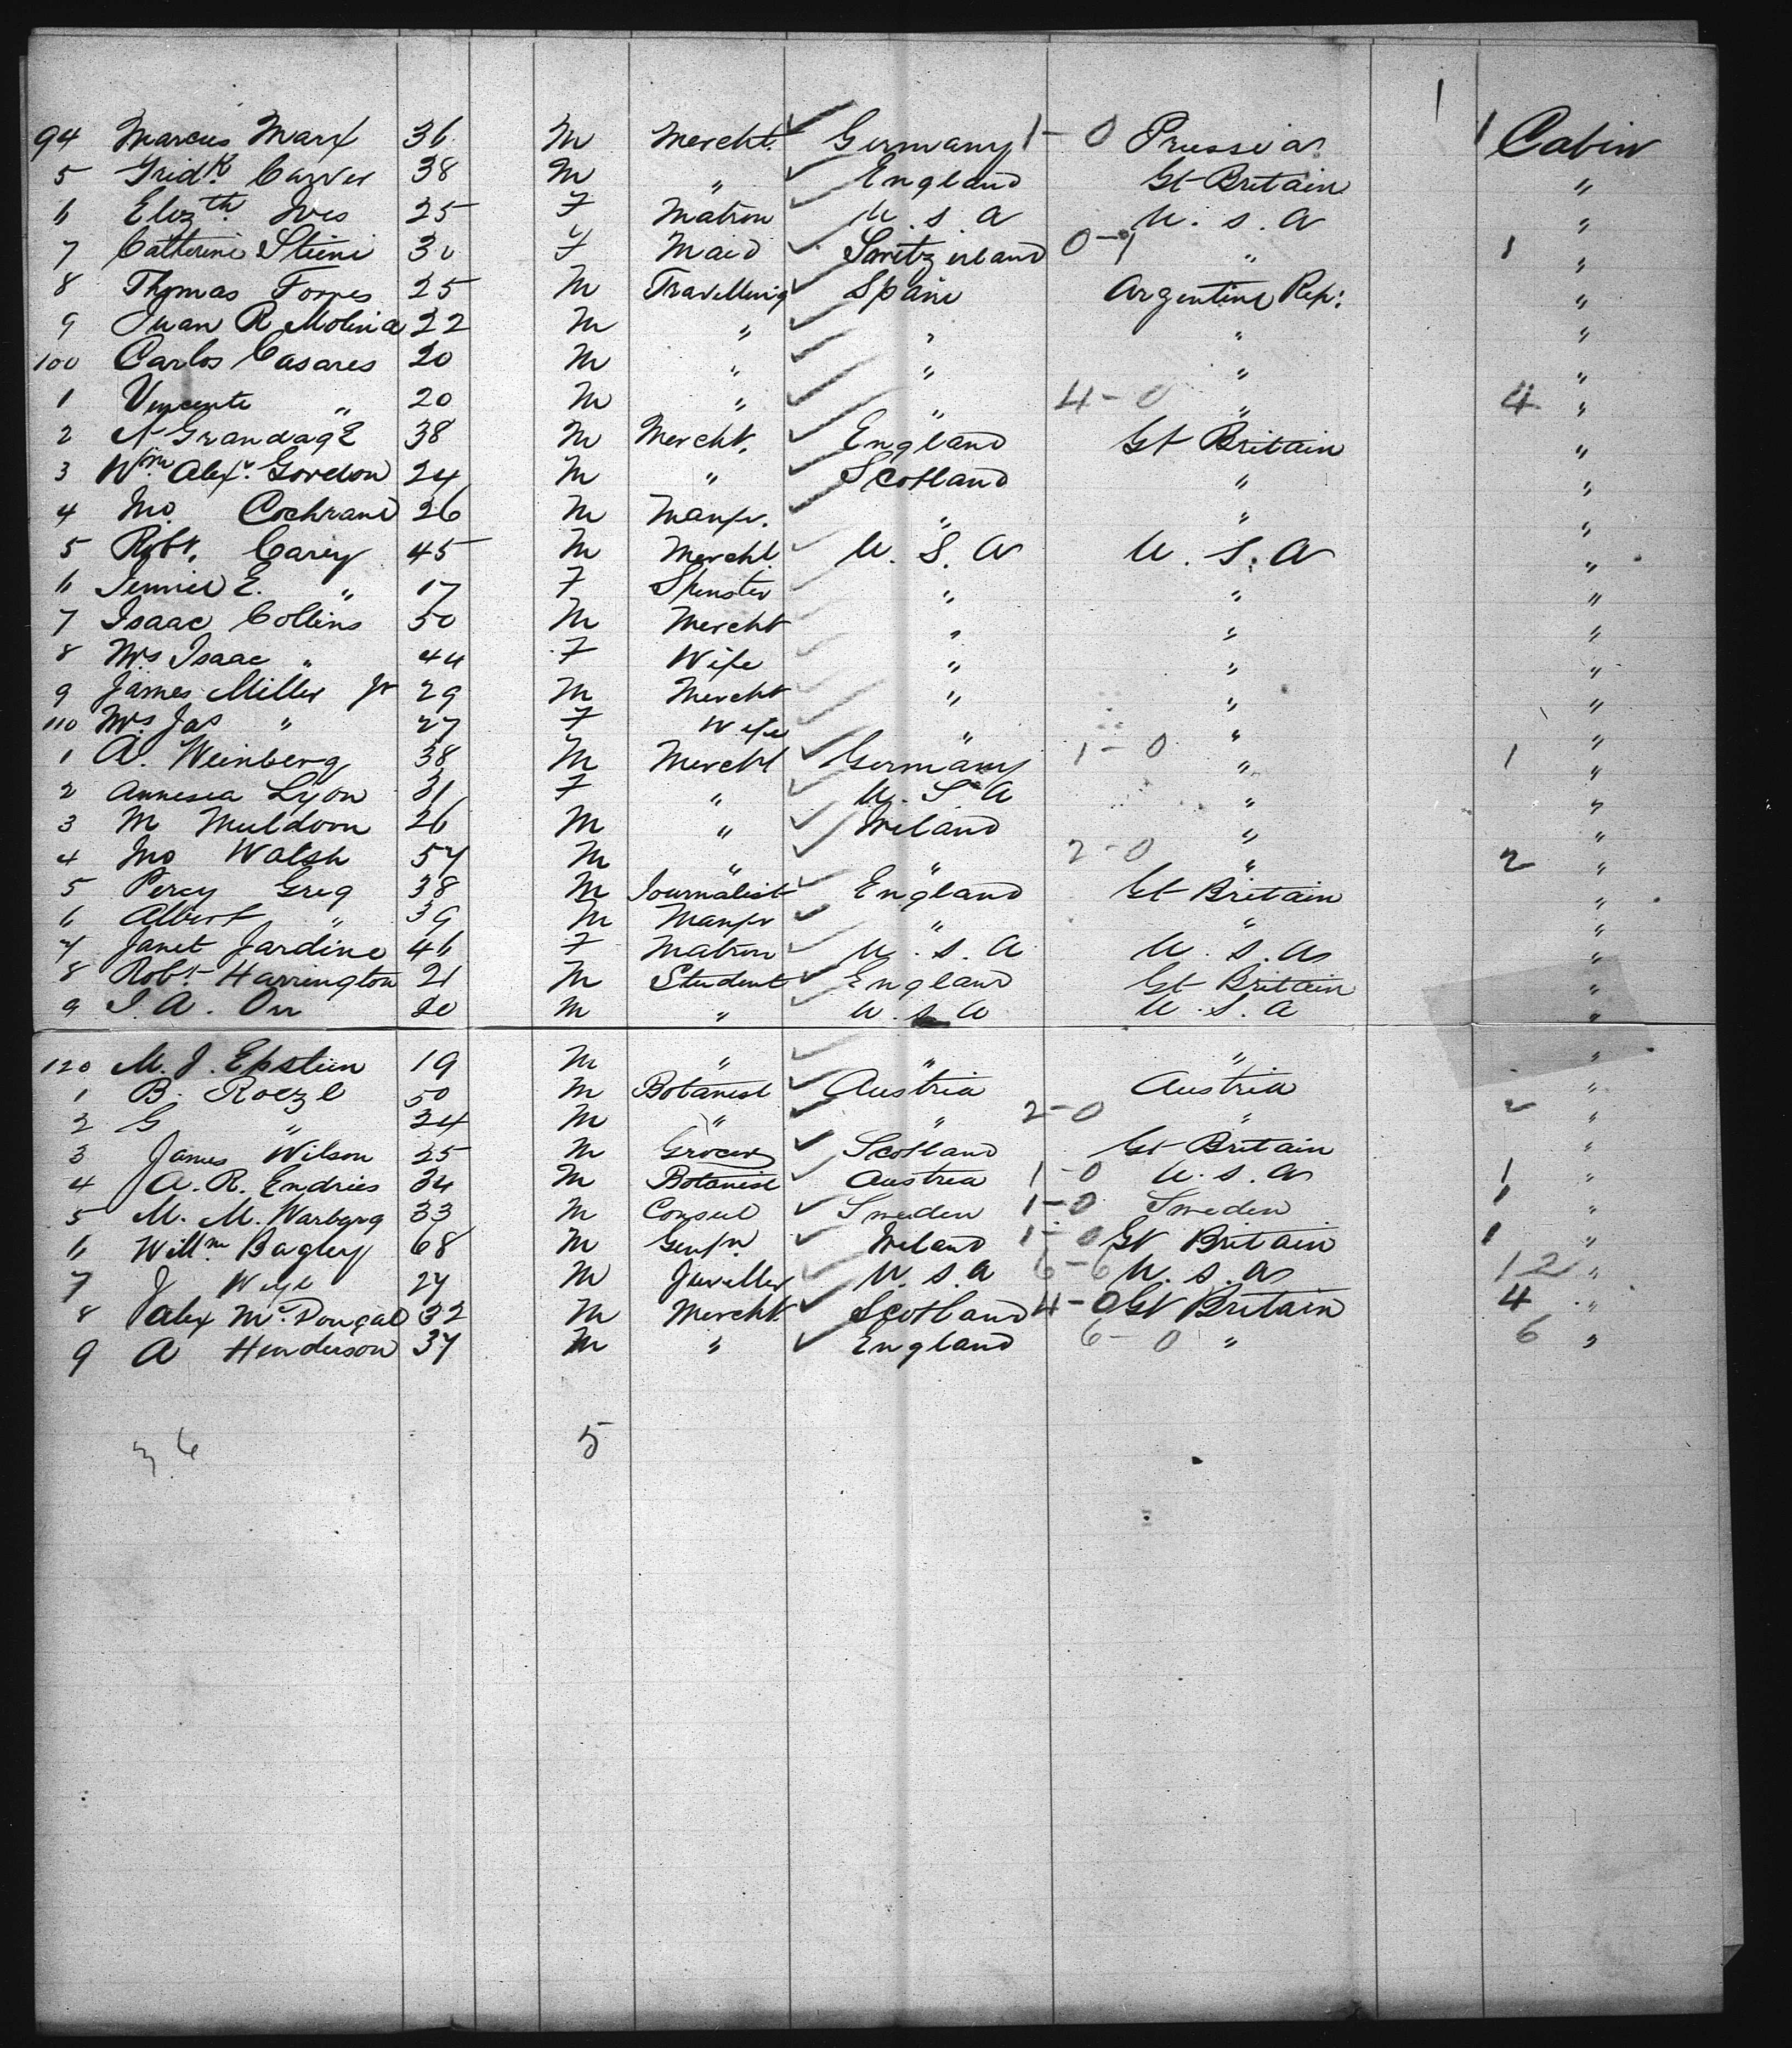 94 Marcus Marx 36 M Mercht. Germany 1-0 Prussia 1 1 Cabin
5 Fridk. Carver 38 M " England Gt Britain "
6 Elizth. Ives 25 F Matron U.S.A U.S.A "
7 Catherine Steini 30 F Maid Switzerland 0-1 " 1 "
8 Thomas Torres 25 M Travelling Spain Argentine Rep: "
9 Juan R Molina 22 M " " " "
100 Carlos Casares 20 M " " " "
1 Vincente " 20 M " " 4-0 " 4 "
2 A Grandage 38 M Mercht. England Gt Britain "
3 Wm. Alexr. Gordon 24 M " Scotland " "
4 Jno. Cochrane 26 M Manfr. " " "
5 Robt. Carey 45 M Mercht. U.S.A U.S.A "
6 Jennie E. " 17 F Spinster " " "
7 Isaac Collins 50 M Mercht " " "
8 Mrs Isaac " 44 F Wife " " "
9 James Miller Jr 29 M Mercht " " "
110 Mrs Jas " 27 F Wife " " "
1 A. Weinberg 38 M Mercht Germany 1-0 " 1 "
2 Annesia Lyon 31 F " U.S.A " "
3 M Muldoon 26 M " Ireland " "
4 Jno Walsh 57 M " " 2-0 " 2 "
5 Percy Greg 38 M Journalist England Gt Britain "
6 Albert " 39 M Manfr " " "
7 Janet Jardine 46 F Matron U.S.A U.S.A "
8 Robt. Harrington 21 M Student England Gt Britain "
9 J.A. Orr 20 M " U.S.A U.S.A "
120 M.J. Epstein 19 M " " " "
1 B. Roezl 50 M Botanist Austria Austria "
2 G " 24 M " " 2-0 " 2 "
3 James Wilson 25 M Grocer Scotland Gt Britain "
4 A.R. Endries 34 M Botanist Austria 1-0 U.S.A 1 "
5 M. M. Warburg 33 M Consul Sweden 1-0 Sweden 1 "
6 Willm Bagley 68 M Gentn. Ireland 1-0 Gt Britain 1 "
7 J Weyl 27 M Jueller U.S.A 6-6 U.S.A 12 "
8 Alex McDougal 32 M Mercht. Scotland 4-0 Gt Britain 4 "
9 A Henderson 37 M " England 6-0 " 6 "
36 5